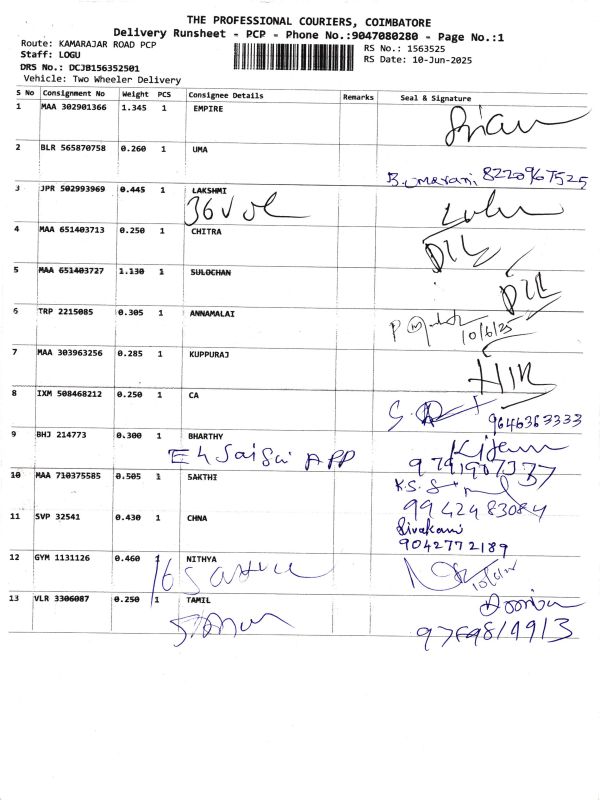 THE PROFESSIONAL COURIERS, COIMBATORE
Delivery Runsheet - PCP - Phone No.:9047080280 - Page No.:1
Route: KAMARAJAR ROAD PCP
RS No.: 1563525
Staff: LOGU
RS Date: 10-Jun-2025
DRS No.: DCJB156352501
Vehicle: Two Wheeler Delivery
S No Consignment No Weight PCS Consignee Details Remarks Seal & Signature
1 MAA 302901366 1.345 1 EMPIRE
2 BLR 565870758 0.260 1 UMA
8220967525
3 JPR 502993969 0.445 1 LAKSHMI
4 MAA 651403713 0.250 1 CHITRA
5 MAA 651403727 1.130 1 SULOCHAN
6 TRP 2215085 0.305 1 ANNAMALAI
10/6/25
7 MAA 303963256 0.285 1 KUPPURAJ
8 IXM 508468212 0.250 1 CA
9646363333
9 BHJ 214773 0.300 1 BHARTHY
E4 Sai Sai APP
10 MAA 710375585 0.505 1 SAKTHI
11 SVP 32541 0.430 1 CHNA
Sivakami
9042772189
12 GYM 1131126 0.460 1 NITHYA
13 VLR 3306087 0.250 1 TAMIL